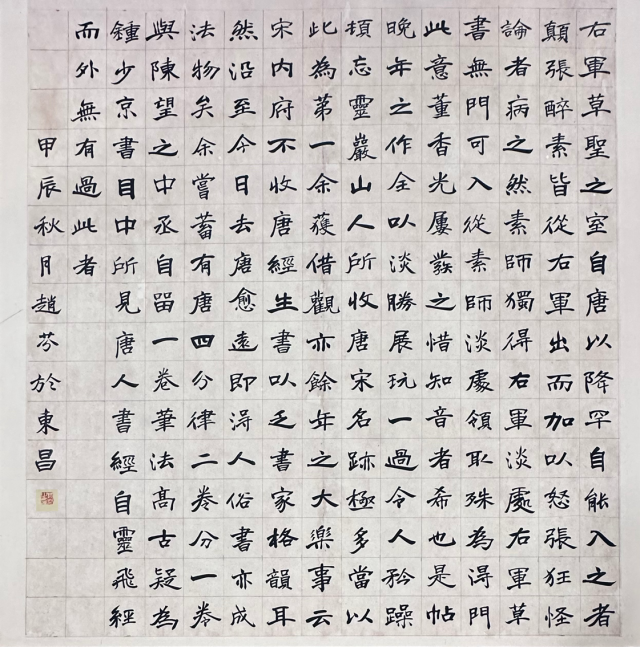 右軍草聖之室自唐以降罕自能入之者
顛張醉素皆從右軍出而加以怒張狂怪
論者病之然素師獨得右軍淡處右軍草
書無門可入從素師淡處領取殊為得門
此意董香光屢發之惜知音者希也是帖
晚年之作全以淡勝展玩一過令人矜躁
頓忘靈巖山人所收唐宋名跡極多當以
此為第一余獲借觀亦餘年之大樂事云
宋内府不收唐經生書以乏書家格韻耳
然沿至今日去唐愈遠即得人俗書亦成
法物矣余嘗蓄有唐四分律二卷分一卷
與陳望之中丞自留一卷筆法高古疑為
鍾少京書目中所見唐人書經自靈飛經
而外無有過此者
甲辰秋月趙芬於東昌